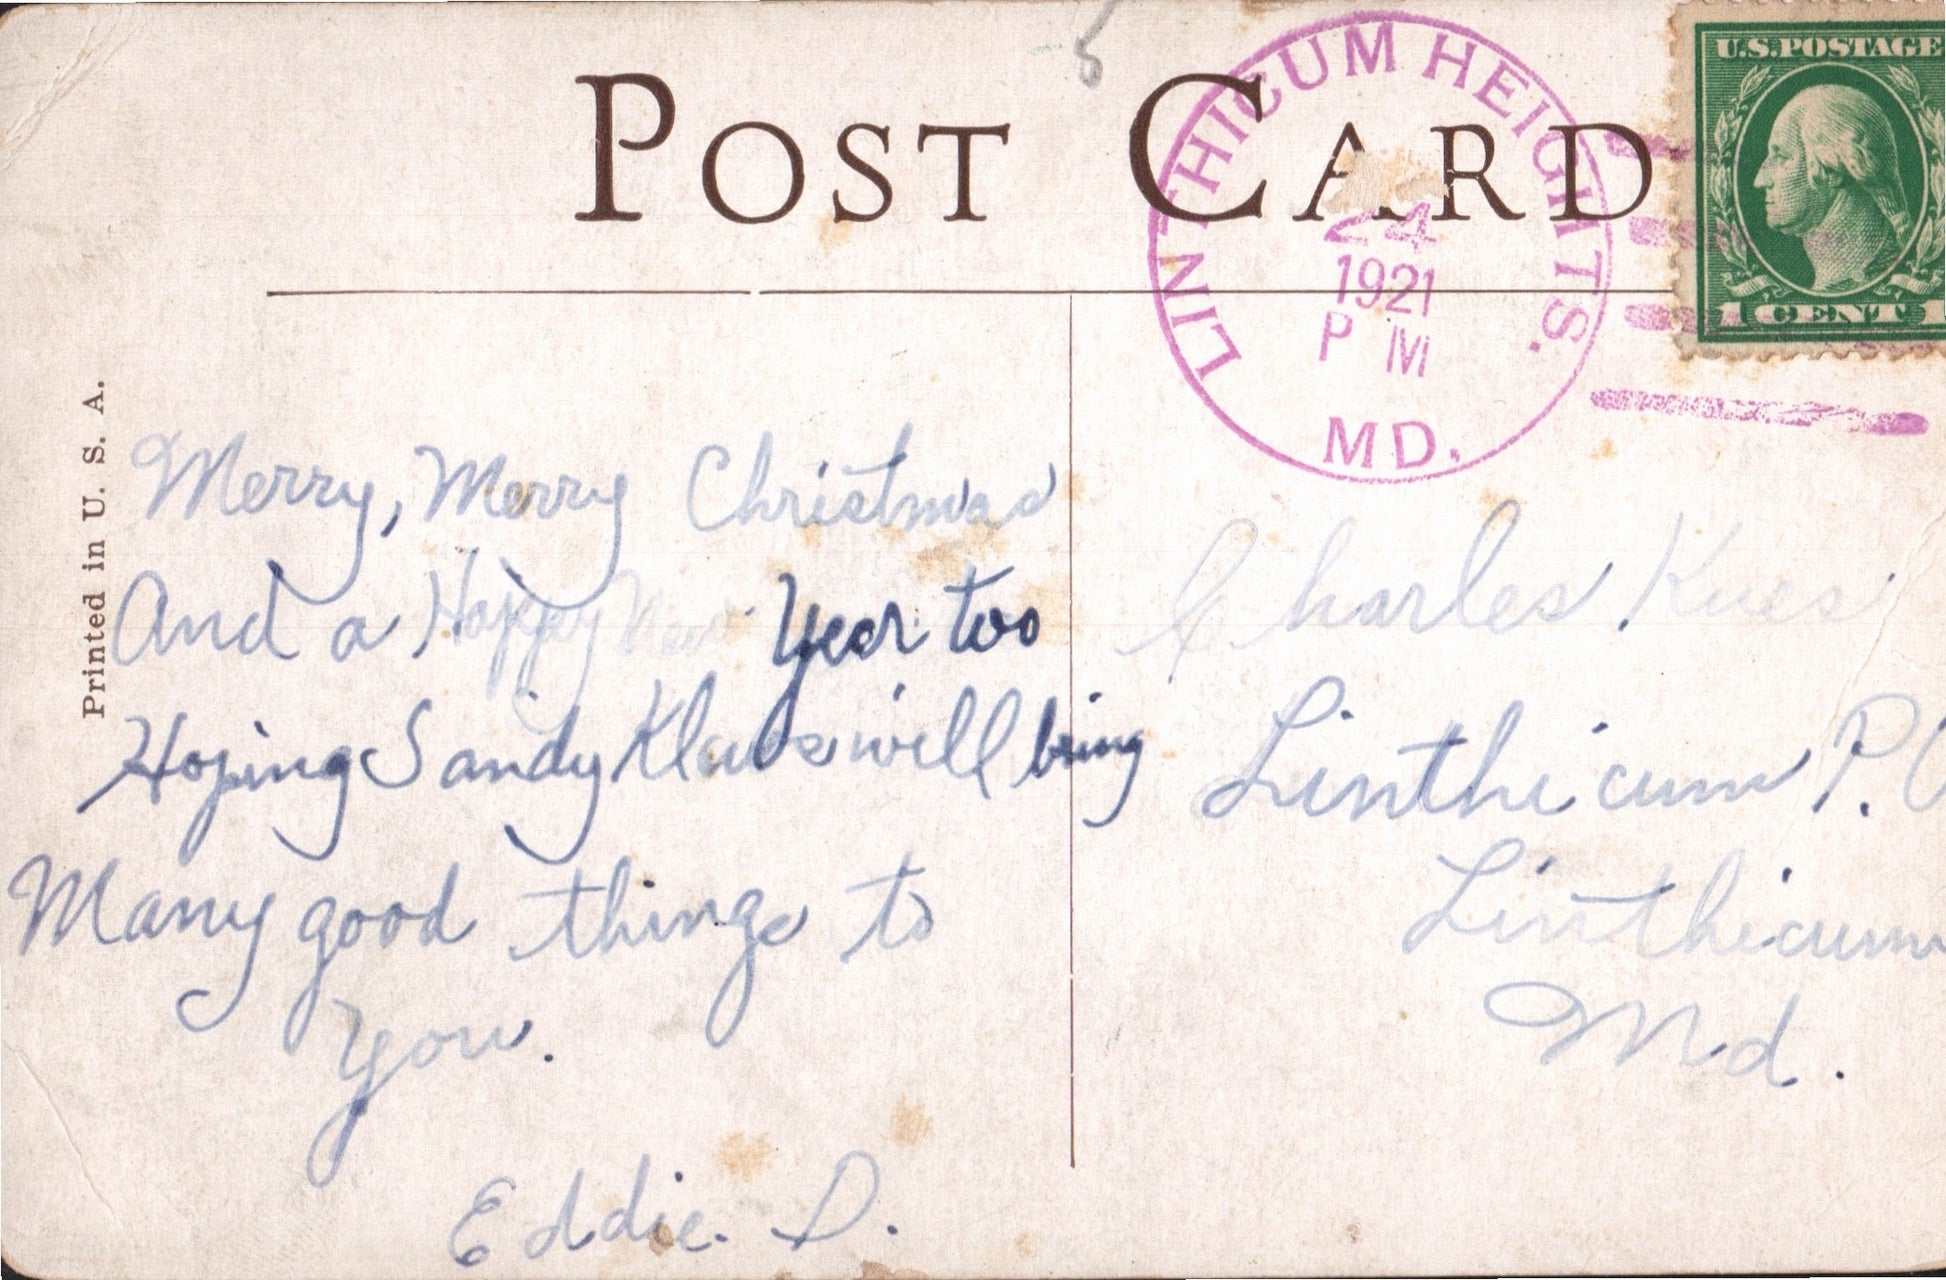 POST CARD
LINTHICUM HEIGHTS.
24
1921
P M
MD.
U.S. POSTAGE
1 CENT 1
Printed in U. S. A.
Merry, Merry Christmas
And a Happy New Year too
Hoping Sandy Klaus will bring
Many good things to
you.
Eddie. D.
Charles Kues
Linthicum P.O
Linthicum
Md.